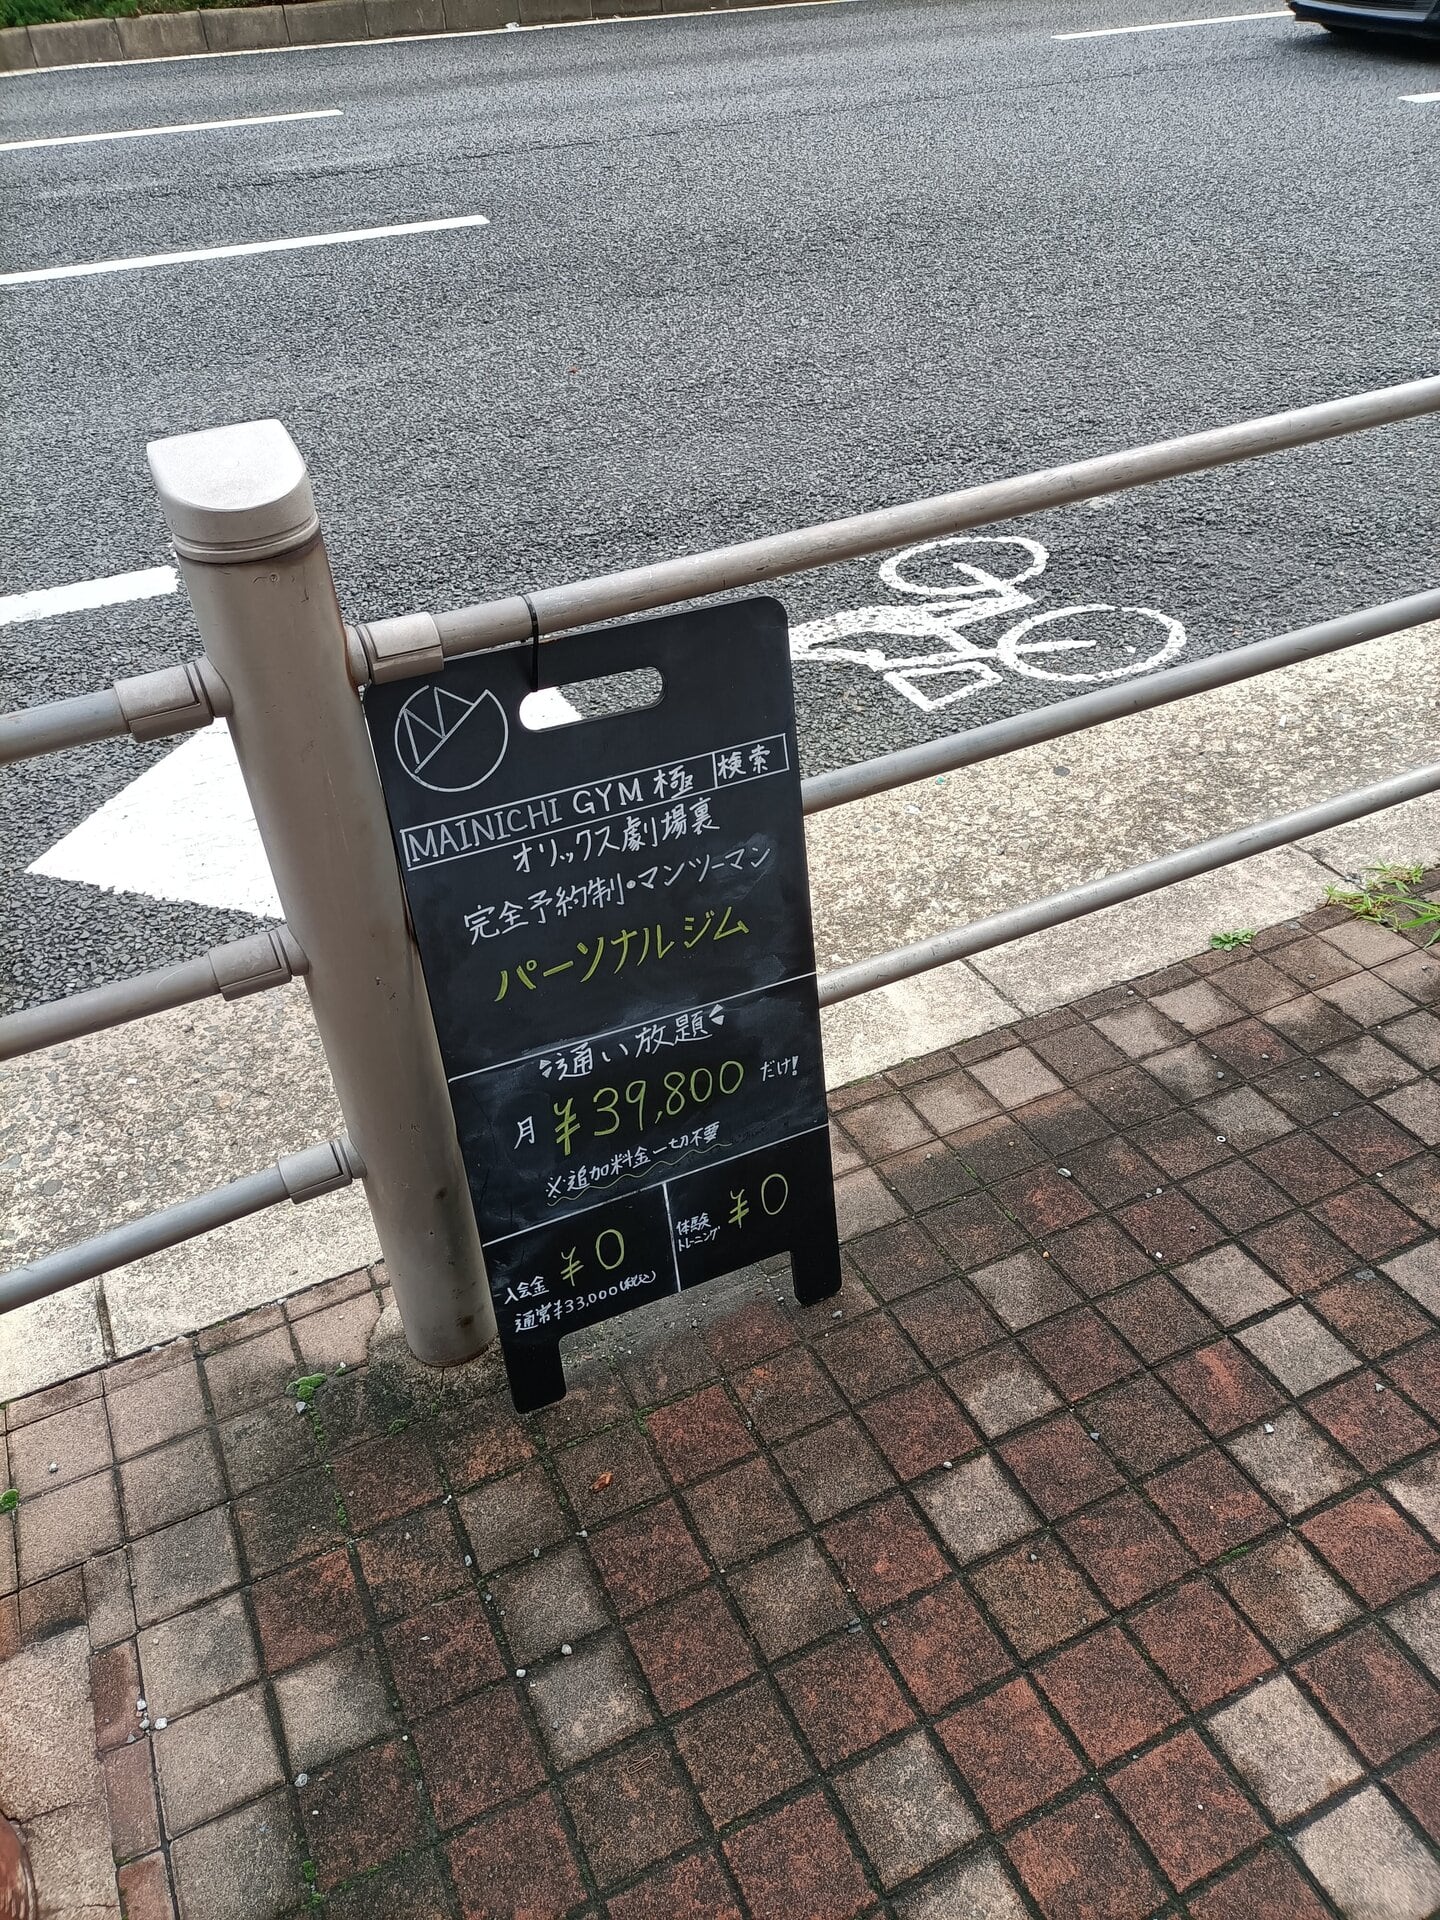 MAINICHI GYM 極 検索
オリックス劇場裏
完全予約制・マンツーマン
パーソナルジム
通い放題
月 ¥39,800 だけ!
※追加料金一切不要
入会金 ¥0
通常¥33,000(税込)
体験トレーニング ¥0